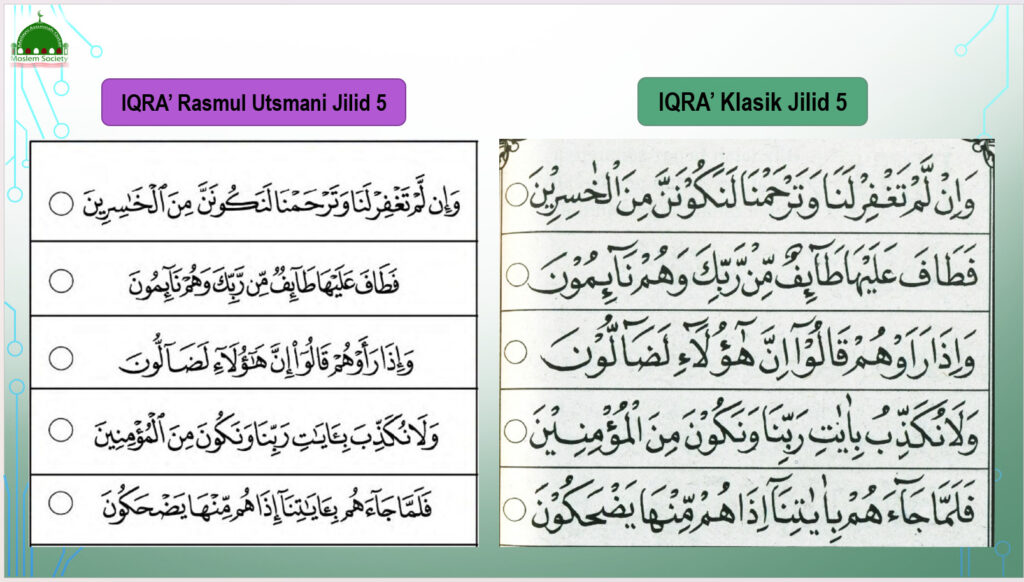 Moslem Society
IQRA’ Rasmul Utsmani Jilid 5
وَإِن لَّمْ تَغْفِرْ لَنَا وَتَرْحَمْنَا لَنَكُونَنَّ مِنَ ٱلْخَٰسِرِينَ
فَطَافَ عَلَيْهَا طَآئِفٌ مِّن رَّبِّكَ وَهُمْ نَآئِمُونَ
وَإِذَا رَأَوْهُمْ قَالُوٓا۟ إِنَّ هَٰٓؤُلَآءِ لَضَآلُّونَ
وَلَا نُكَذِّبَ بِـَٔايَٰتِ رَبِّنَا وَنَكُونَ مِنَ ٱلْمُؤْمِنِينَ
فَلَمَّا جَآءَهُم بِـَٔايَٰتِنَآ إِذَا هُم مِّنْهَا يَضْحَكُونَ
IQRA’ Klasik Jilid 5
وَاِنْ لَّمْ تَغْفِرْ لَنَا وَتَرْحَمْنَا لَنَكُوْنَنَّ مِنَ الْخٰسِرِيْنَ
فَطَافَ عَلَيْهَا طَآئِفٌ مِّنْ رَّبِّكَ وَهُمْ نَآئِمُوْنَ
وَاِذَا رَاَوْهُمْ قَالُوْٓا اِنَّ هٰٓؤُلَآءِ لَضَآلُّوْنَ
وَلَا نُكَذِّبُ بِاٰيٰتِ رَبِّنَا وَنَكُوْنَ مِنَ الْمُؤْمِنِيْنَ
فَلَمَّا جَآءَهُمْ بِاٰيٰتِنَآ اِذَا هُمْ مِّنْهَا يَضْحَكُوْنَ